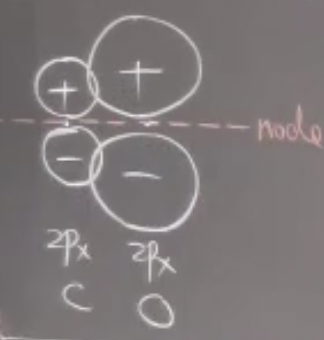 + +
node
- -
2px 2px
C O